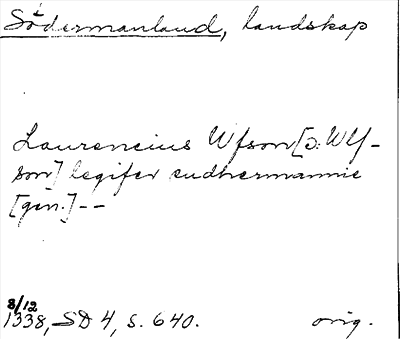 Södermanland, landskap
Laurencius Wfson [ɔ: Wlf-
son] legifer sudhermannie
[gen.] --
8/12
1338, SD 4, s. 640. orig.